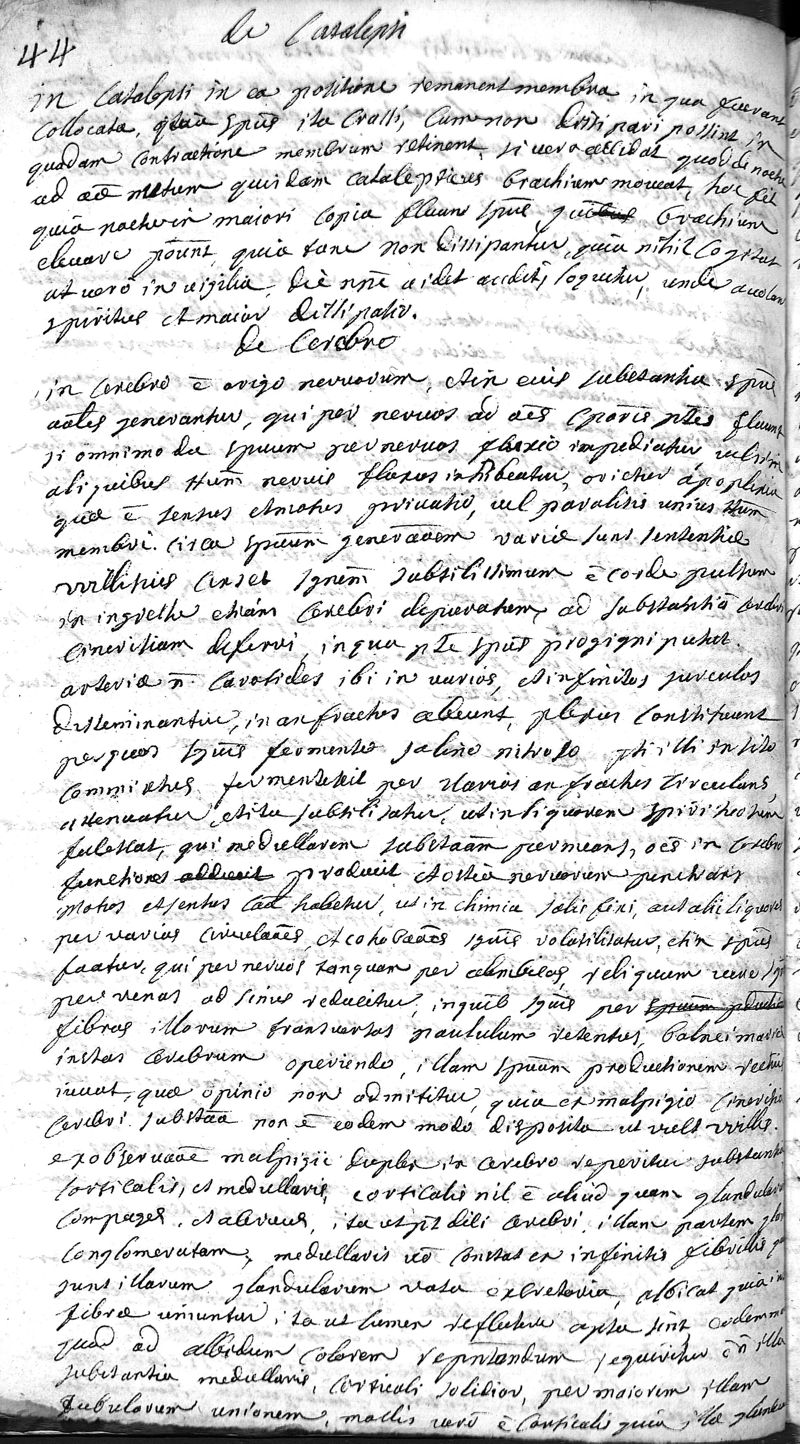 44
de Catalepsi
in Catalepsi in ea positione remanent membra in qua fuerant
Collocata, spũs ita Crassi, Cum non dissipari possint in
quadam Contractione membrum retinent, si vero accidat quod de nocte
ad metum quidam catalepticus brachium moveat, hoc fit
quia noctu in maiori copia fluunt spũs, brachium
elevare põunt, quia tunc non dissipantur, quia nihil Cogitat
at vero in vigilia, die videt audit, loquitur, unde avolan
spiritus et maior dissipatio.
de Cerebro
in Cerebro ē origo nervorum, et in eius substantia spũs
aãles generantur, qui per nervos ad oẽs Cporis ptes fluunt
si omnimode spuum per nervos fluxio impediatur, vel si in
aliquibus nervis fluxus inhibeatur, orietur apoplexia
quæ ē sensus et motus privatio, vel paralisis unius
membri. Circa spuum generãoem variæ sunt sententiæ
vvillisius Censet sgnem subtilissimum ē corde pulsum
in ingressu etiam Cerebri depuratum, ad substantiã Cerebri
Cineritiam deferri, in qua pte spũs progigni putat.
arteriæ n. Carotides ibi in varios, et infinitos surculos
disseminantur, in anfractus abeunt, plexus Constituunt
per quos sguis fermento salino nitroso pti illi insito
Commixtus fermentescit per varios anfractus Circulans,
attenuatur, et ita subtilisatur, ut in liquorem
facessat, qui medullarem substãam permeans, oẽs in Cerebro
functiones producit et ostia nervorum penetrans
motus et sensus Cãa habetur, ut in chimia salis fixi, aut alii liquores
per varias Circulãoẽs, et cohobãoẽs sguis volatilisatur, et in spũs
faatur, qui per nervos tanquam per alembicos, reliquum vero sgis
per venas ad sinus reducitur, in quib. sguis per
fibras illorum transversas paululum retentus, balnei mariæ
instar Cerebrum operiendo, illam spuum productionem
iuvat, quæ opinio non admititur, quia ex malpigio Cineritia
Cerebri substãa non ē eodem modo disposita ut vult vvillis.
ex observãoẽ malpigii duplex in Cerebro reperitur substantia
Corticalis, et medullaris, corticalis nil ē aliud quam glandularum
Compages, et acervus, ita ut Cerebri illam partem
Conglomeratam, medullaris vo Constat ex infinitis fibrillis quæ
sunt illarum glandularum vasa excretoria, albicat quia
fibræ uniuntur ita ut lumen reflectere aptæ sint, eodem mo
quod ad albidum Colorem repñtandum requiritur illa
substantia medullaris, Corticali solidior, per maiorem illam
tubulorum unionem, mollis vero ē Corticalis quia illæ glandulæ